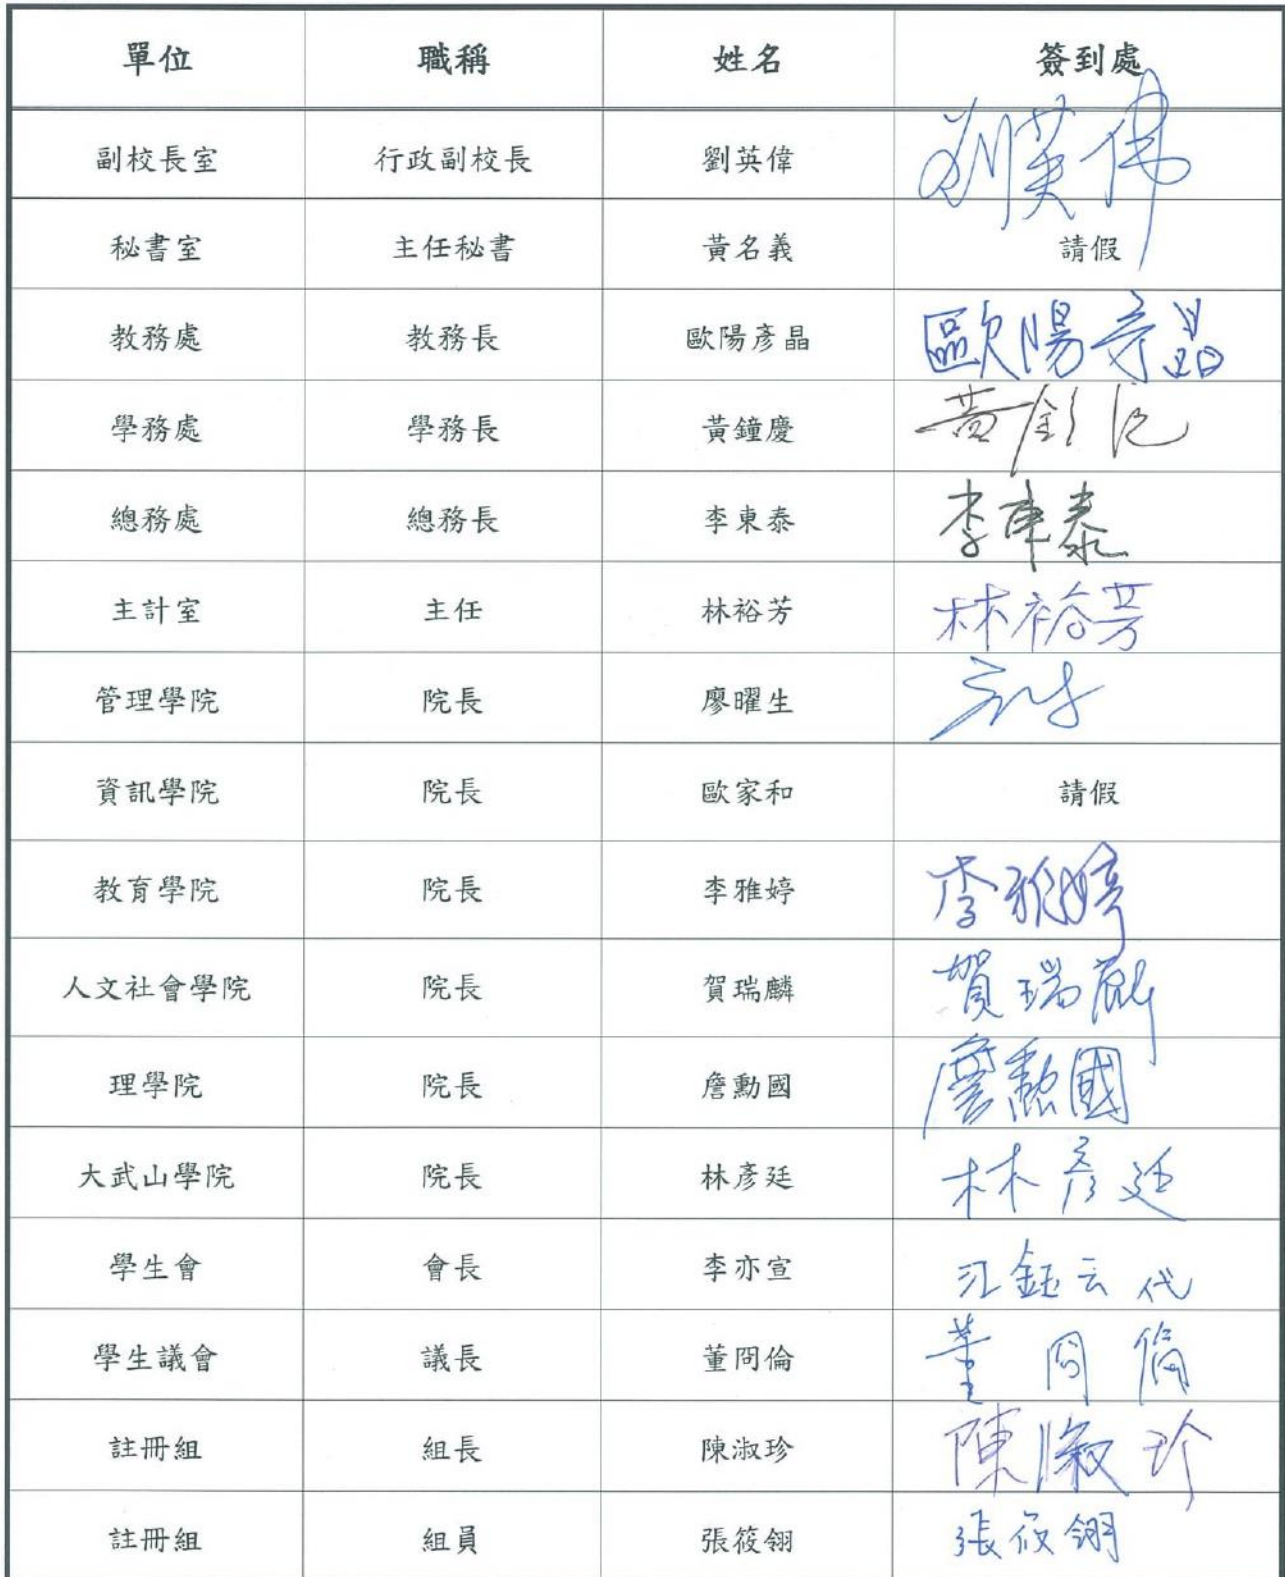 單位 職稱 姓名 簽到處
副校長室 行政副校長 劉英偉 劉英偉
秘書室 主任秘書 黃名義 請假
教務處 教務長 歐陽彥晶 歐陽彥晶
學務處 學務長 黃鐘慶
總務處 總務長 李東泰 李東泰
主計室 主任 林裕芳 林裕芳
管理學院 院長 廖曜生
資訊學院 院長 歐家和 請假
教育學院 院長 李雅婷 李雅婷
人文社會學院 院長 賀瑞麟 賀瑞麟
理學院 院長 詹勳國 詹勳國
大武山學院 院長 林彥廷 林彥廷
學生會 會長 李亦宣 江鈺云代
學生議會 議長 董冏倫 董冏倫
註冊組 組長 陳淑珍 陳淑珍
註冊組 組員 張筱翎 張筱翎